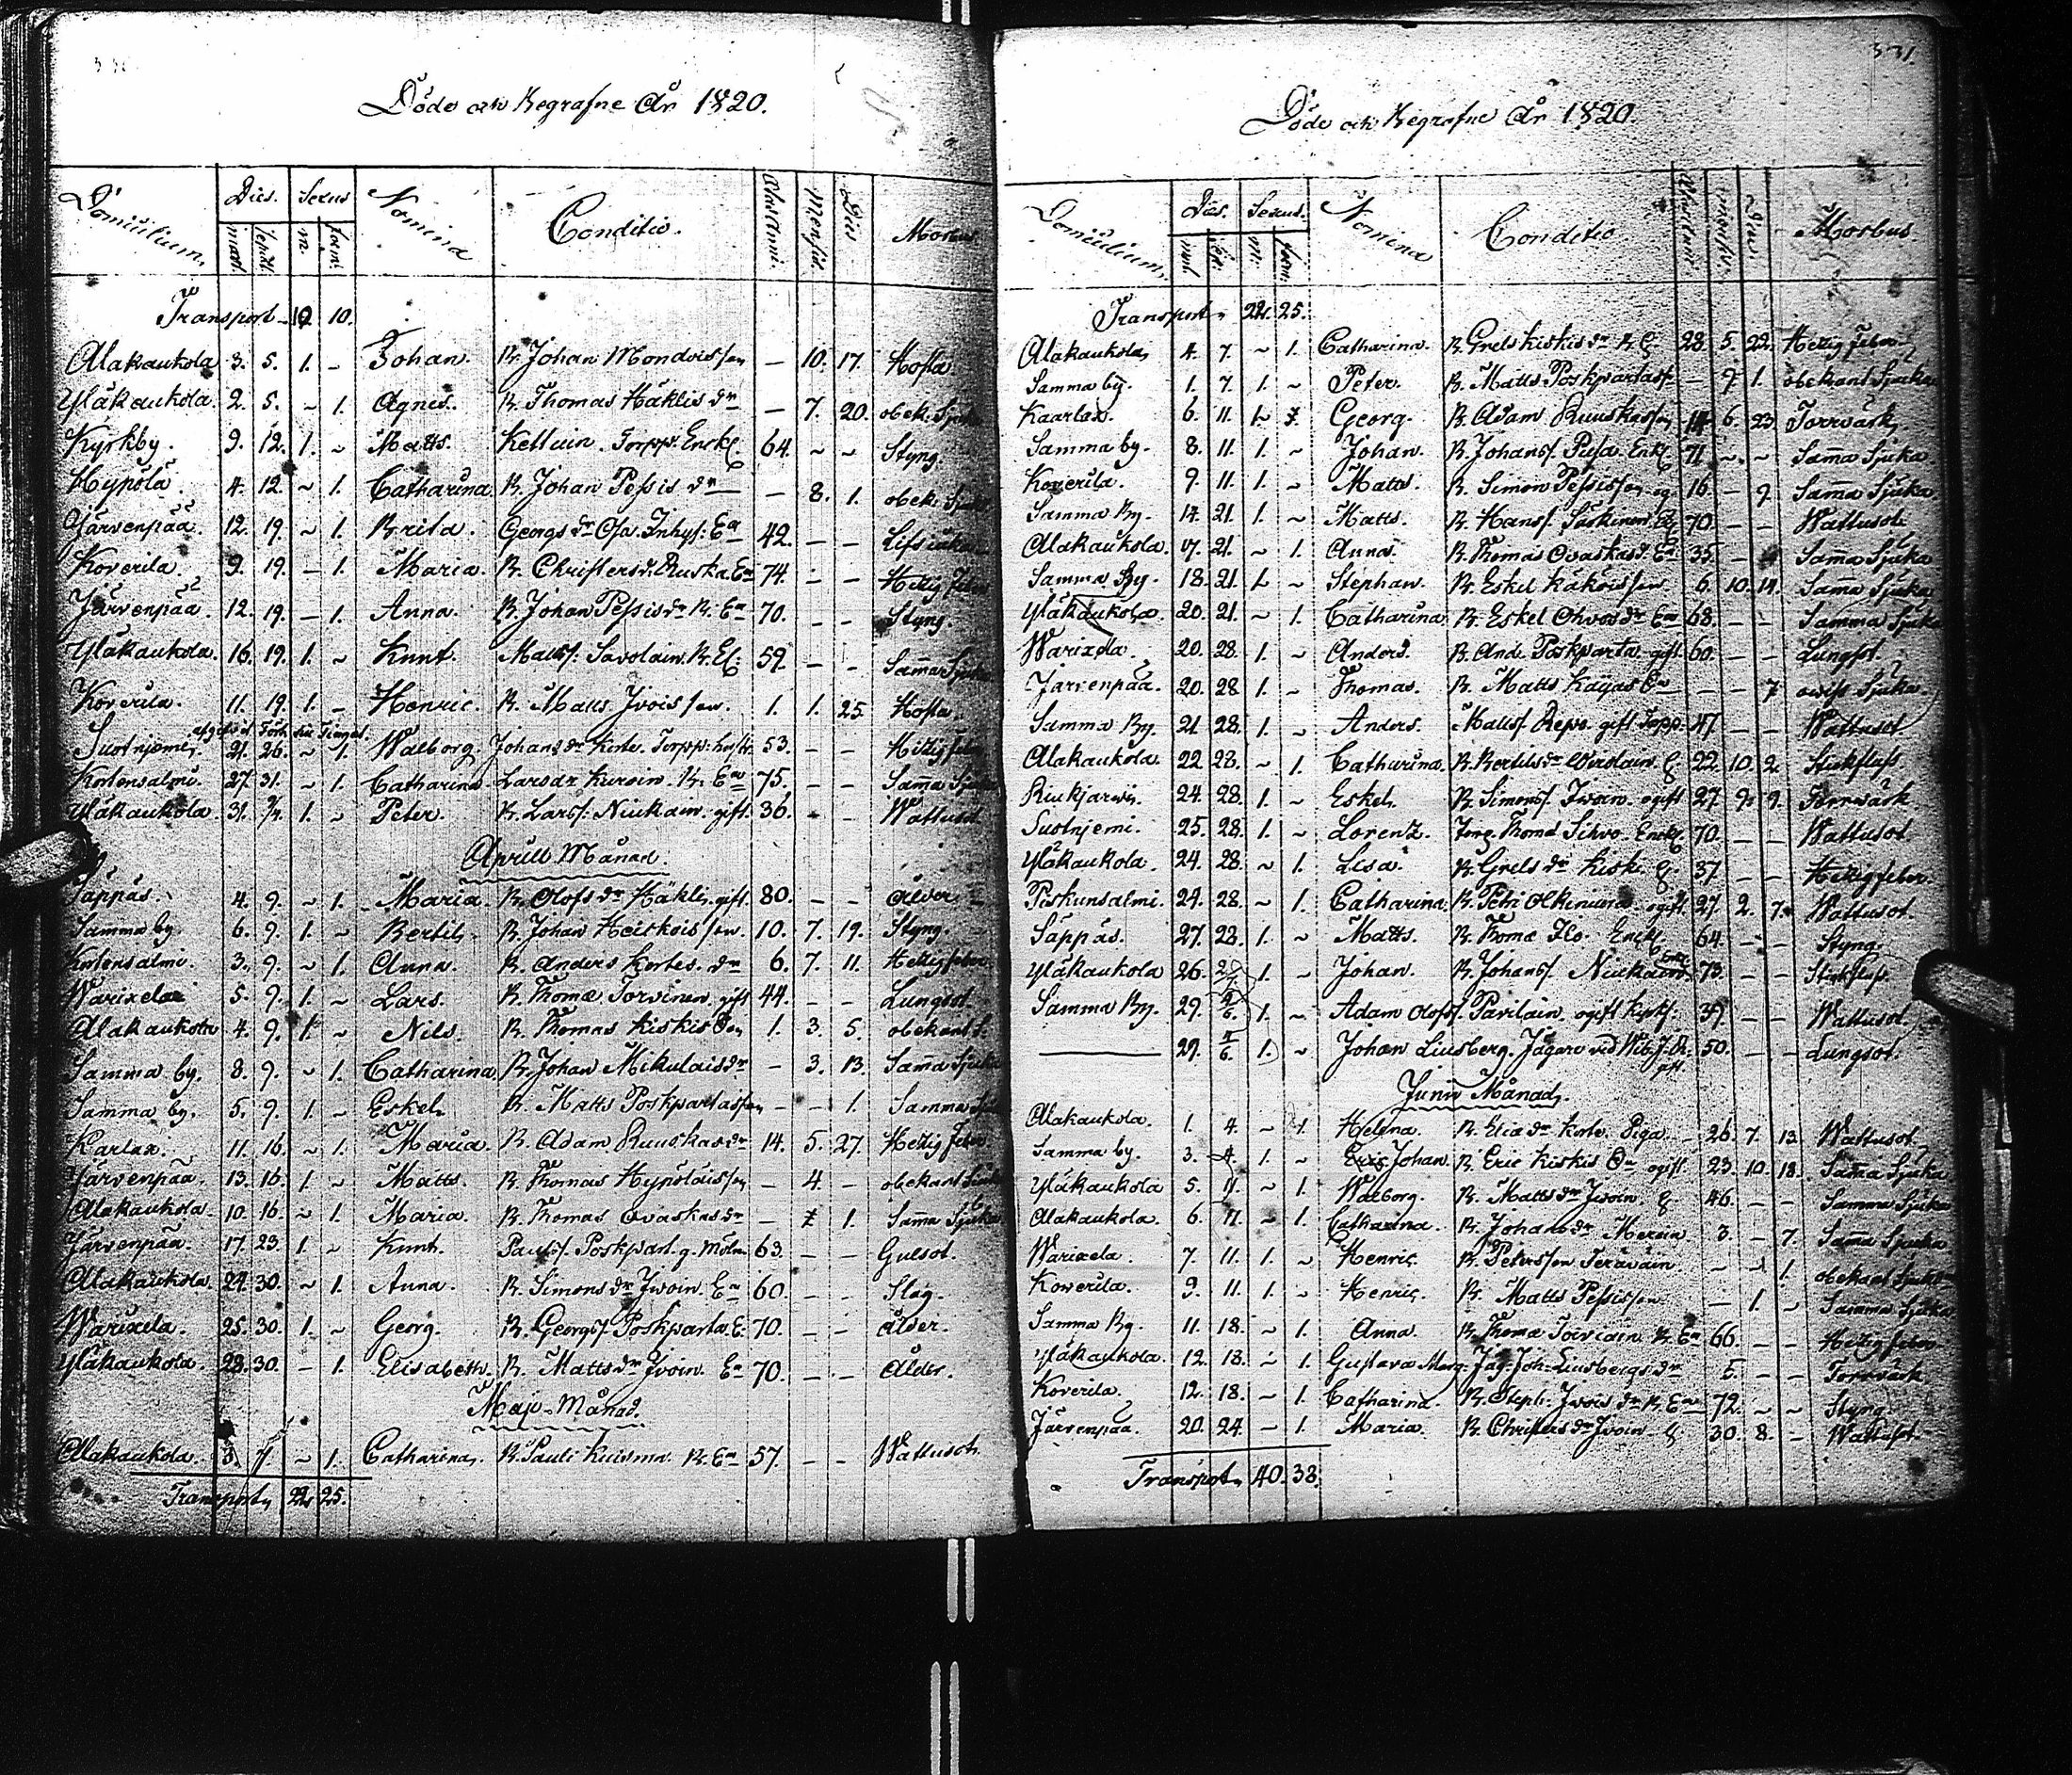 Döde och Begrafne År 1820.
Domicilium. Dies. Sexus Nomina Conditio. Dies Morbus
Transport 10.
Alakaukola 3. 5. 1. – Johan. B. Johan Mondois son — 10. 17. Hosta.
Yläkaukola. 2. 5. ~ 1. Agnes. B. Thomas Häklis dr — 7. 20. obek. Sjuka
Kyrkby. 9. 12. 1. ~ Matts. Torpp. Enckl. 64. ~ ~ Styng.
Hypölä 4. 12. ~ 1. Catharina B. Johan Pessis dr — 8. 1. obek. Sjuka
Järvenpää. 12. 19. ~ 1. Brita. Georgs dr Inhys: Ea 42. – –
Koverila. 9. 19. – 1. Maria. B. Christers d. Ruska. Ea 74. – – Hetzig feber
Järvenpää. 12. 19. – 1. Anna. B. Johan Pessis dr B. Ea 70. – – Styng.
Yläkaukola. 16. 19. 1. ~ Knut. Matts. Savolain. B. El: 59. – – Samma Sjuka
Koverila. 11. 19. 1. – Henric. B. Matts Ivois son. 1. 1. 25. Hosta.
Suotnjemi. 21. 26. ~ 1. Walborg. Johans dr Korte. Torpp: 53. – – Hetzig feber
Kortensalmi. 27. 31. ~ 1. Catharina Lars dr B. Ea 75. – – Samma Sjuka
Yläkaukola. 31. 1. ~ Peter. B. Larss: Niukain. gift. 36. – – Wattusot
Aprill Månad.
Säppäs. 4. 9. ~ 1. Maria. B. Olofs dr Häklis gift. 80. – –
Samma by. 6. 9. 1. ~ Bertil. B. Johan Heiskois son. 10. 7. 19. Styng
Kortensalmi. 3. 9. ~ 1. Anna. B. Anders Kortes. dr 6. 7. 11. Hetzig feber
Warixela 5. 9. 1. ~ Lars. B. Thomæ Torvinen gift 44. – – Lungsot.
Alakaukola 4. 9. 1. ~ Nils. B. Thomas Kiskis Son 1. 3. 5. obekant S.
Samma by. 8. 9. ~ 1. Catharina B. Johan Mikulais dr — 3. 13. Samma Sjuka
Samma by. 5. 9. 1. ~ Eskel. B. Matts Poskpartas son — – 1. Samma
Karlax. 11. 16. ~ 1. Maria. B. Adam Ruuskas dr 14. 5. 27. Hetzig feber
Järvenpää. 13. 16. 1. ~ Matts. B. Thomas Hypöläis son — 4. – obekant Sjuka
Alakaukola. 10. 16. ~ 1. Maria. B. Thomas Ovaskas dr — 1. Samma Sjuka
Järvenpää. 17. 23. 1. ~ Knut. Pauls. Poskpart. g. 63. – – Gulsot.
Alakaukola 24. 30. ~ 1. Anna. B. Simons dr Ivoin. Ea 60. – – Slag.
Warixela. 25. 30. 1. ~ Georg. B. Georgs Poskparta. E. 70. – – Ålder.
Yläkaukola. 28. 30. – 1. Elisabeth. B. Matts dr Ivoin. Ea 70. – – Ålder.
Maji Månad.
Alakaukola. 3. 7. ~ 1. Catharina. B. Pauli B. Ea 57. – – Wattusot.
Transport 22 25.
331
Döde och Begrafne År 1820.
Domicilium. Dies. Sexus. Nomina Conditio Morbus.
Transport 22. 25.
Alakaukola 4. 7. ~ 1. Catharina. B. Grels Kiskis dr 28. 5. 22. Hetzig feber
Samma by. 1. 7. 1. ~ Peter. B. Matts Poskpartas — 9. 1. obekant Sjuka
Kaarlax. 6. 11. 1. Georg. B. Adam Ruuskas son 14. 6. 23 Torrvärk
Samma by. 8. 11. 1. ~ Johan. B. Johans. Pusa Enkl. 71 ~ ~ Samma Sjuka
Koverila. 9. 11. 1. ~ Matts. B. Simon Pessis son og 16 – 9. Samma Sjuka
Samma By. 14. 21. 1. ~ Matts. B. Hans. Säskinen 70. – – Wattusot
Alakaukola. 17. 21. ~ 1. Anna. B. Thomas Ovaskas d. Ea 35. – Samma Sjuka
Samma By. 18. 21. 1. ~ Stephan. B. Eskel Käköis son. 6. 10. 14. Samma Sjuka
Yläkaukola 20. 21. ~ 1. Catharina B. Eskel dr Ea 68. – – Samma Sjuka
Warixela. 20. 28. 1. ~ Anders. B. And. Poskparta. gift 60. – – Lungsot.
Järvenpää. 20. 28. 1. ~ Thomas. B. Matts Käyäs Son – – 7 owiss Sjuka.
Samma By. 21. 28. 1. ~ Anders. Matts. Repo. gift Torpp. 47 – – Wattusot
Alakaukola 22 28. ~ 1. Catharina. B. Bertils dr 22. 10 2. Stickfluss
Riukjarwi. 24. 28. 1. ~ Eskel. B. Simons. Ivoin. ogift 27. 9. 9. Torrvärk
Suotnjemi. 25. 28. 1. ~ Lorenz. Torp. Thomæ Sihvo. Enckl. 70. Wattusot.
Yläkaukola. 24. 28. ~ 1. Lisa. B. Grels dr Kiski. 37. – – Hetzig feber.
Poskunsalmi. 24. 28. ~ 1. Catharina. B. Petri Olkinuoras ogift. 27. 2. 7. Wattusot.
Säppäs. 27. 28. 1. ~ Matts. B. Thomæ Ilo. Enckl. 64. – – Styng.
Yläkaukola 26. 1. ~ Johan. B. Johans. Niukain. 73. – – Stickfluss.
Samma By. 29. 1. ~ Adam Olofs. Pärilain. ogift 37. – – Wattusot.
— 29. 4/6. 1. ~ Johan Liusberg. Jägare vid Wib. J. R. gift. 50. – – Lungsot.
Junii Månad.
Alakaukola. 1. 4. ~ 1. Helena. B. Eliæ dr Korte. Piga. 26. 7. 13. Wattusot.
Samma by. 3. 4. 1. ~ Johan. B. Eric Kiskis Son ogift. 23. 10. 18. Samma Sjuka
Yläkaukola 5. 11. ~ 1. Walborg. B. Matts dr Ivoin 46. – – Samma Sjuka
Alakaukola. 6. 11. ~ 1. Catharina. B. Johans dr 3. – 7. Samma Sjuka
Warixela. 7. 11. 1. ~ Henric B. Peters son Teräväin – – 1. obekant Sjuka
Koverila. 9. 11. 1. ~ Henric. B. Matts Pessis son — 1. ~ Samma Sjuka
Samma By. 11. 18. ~ 1. Anna. B. Thomæ Toiviain B. Ea 66. – – Hetzig feber
Yläkaukola. 12. 18. ~ 1. Gustava Marg: Jäg: Joh: Liusbergs dr 5. – – Torrvärk
Koverila. 12. 18. ~ 1. Catharina. B. Steph: Ivois dr B. Ea 72. ~ ~ Styng.
Järvenpää. 20. 24. – 1. Maria. B. Christers dr Ivoin 30. 8. – Wattusot.
Transport 40. 38.